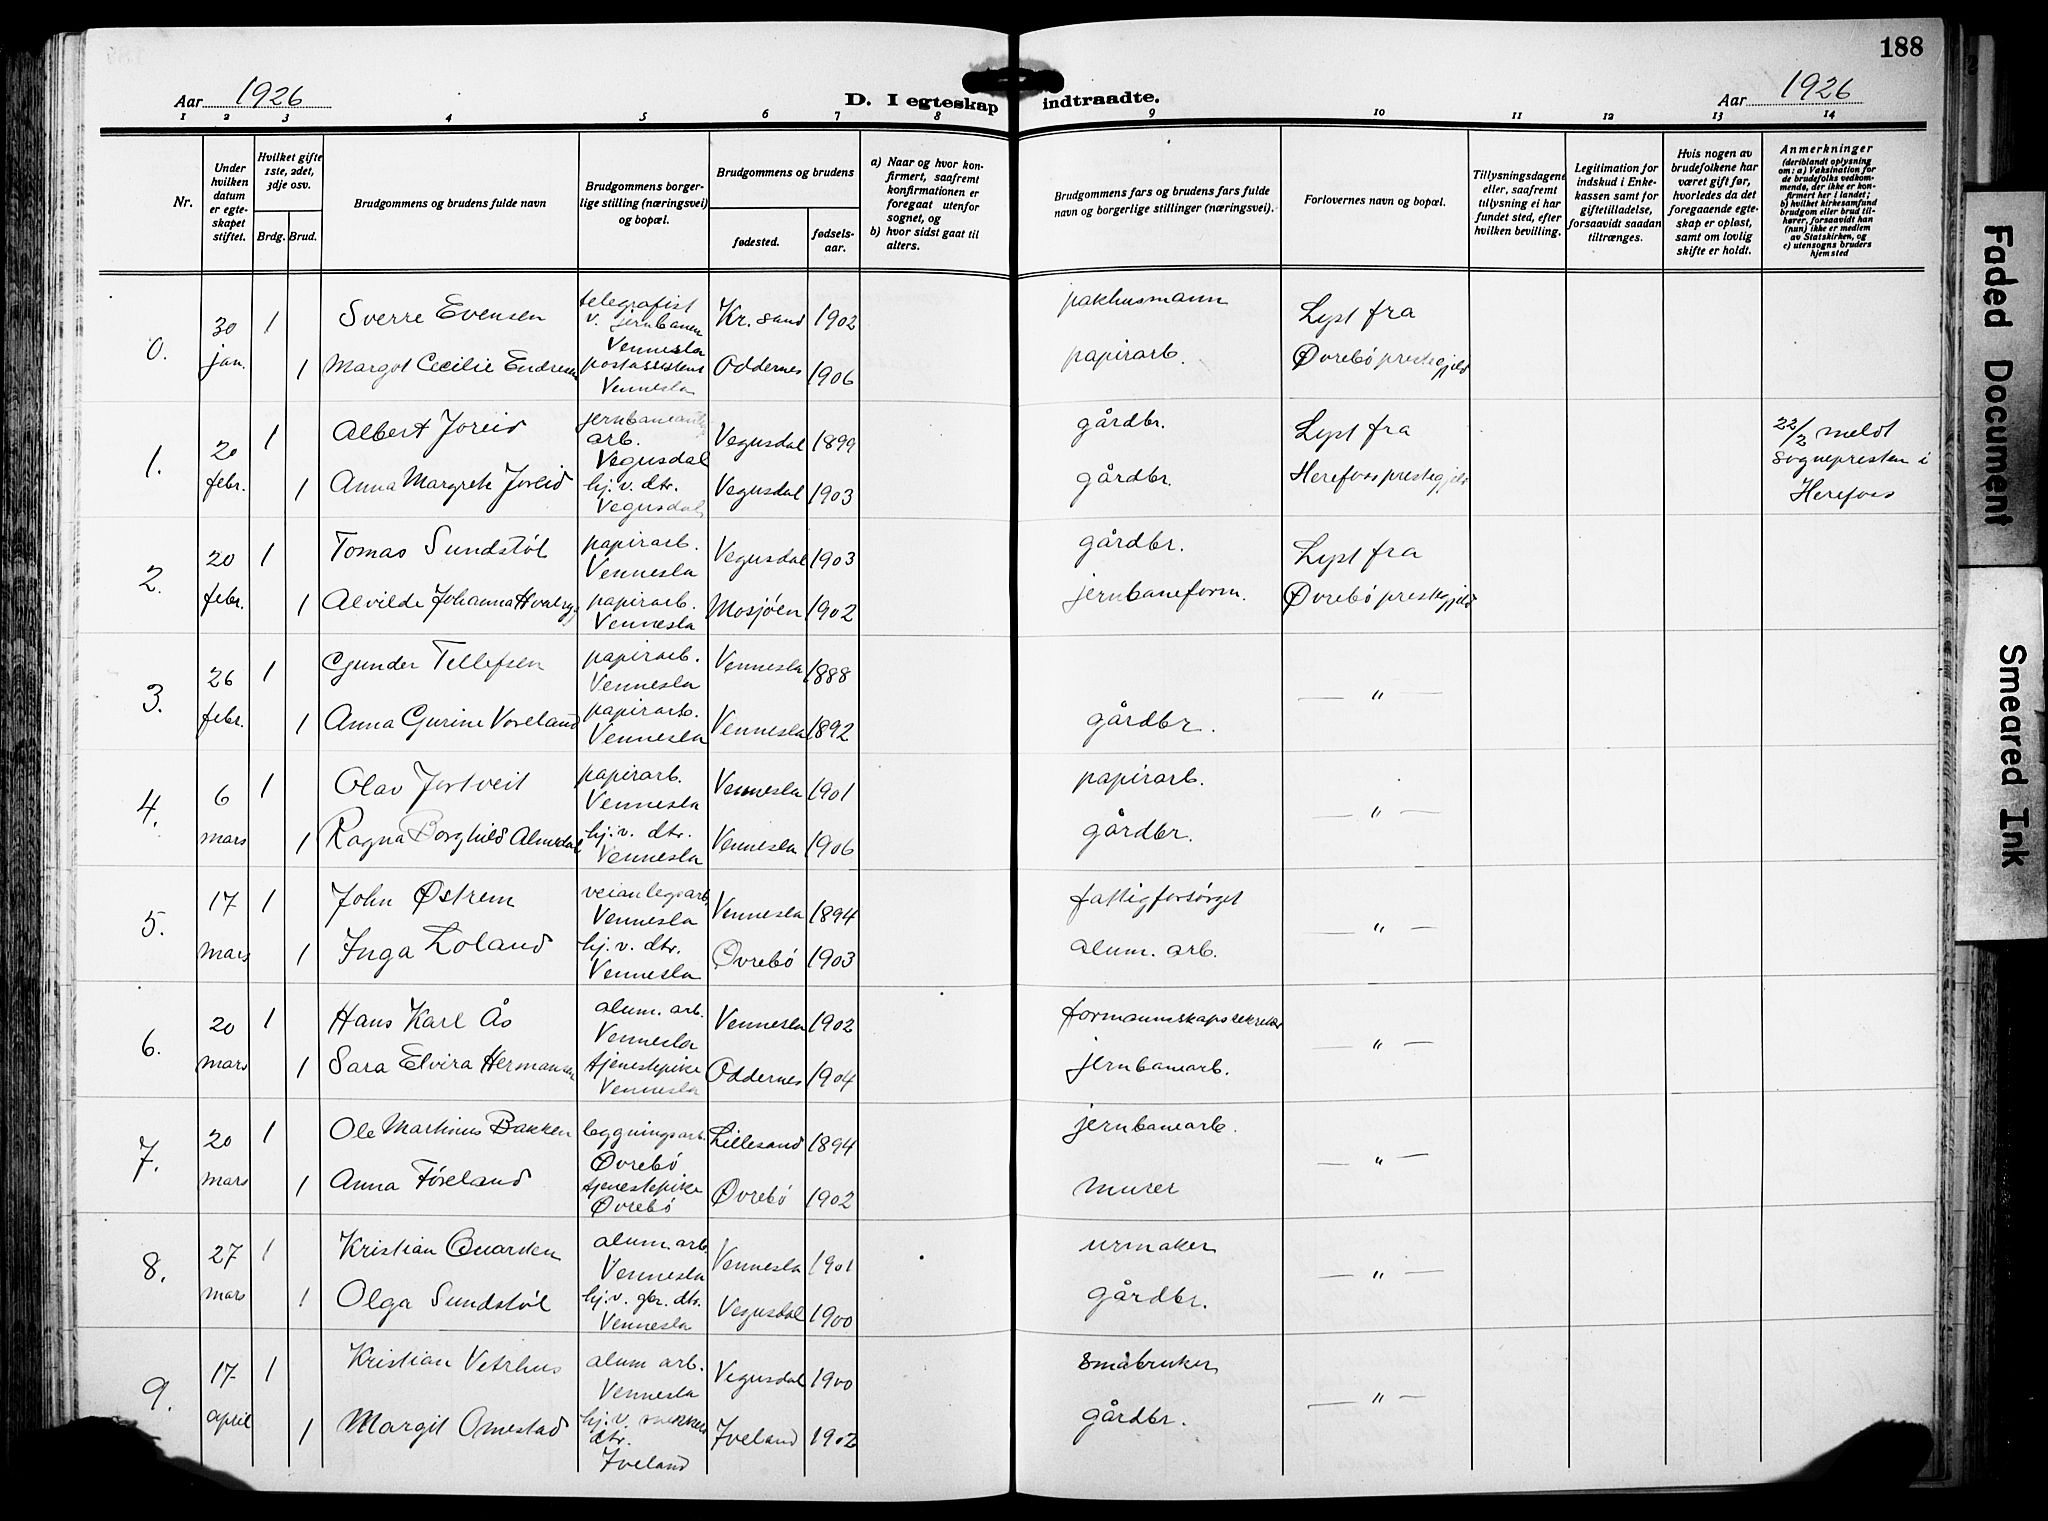 188
Aar 1926
D. I egteskap indtraadte.
Aar 1926
1 2 3 4 5 6 7 8 9 10 11 12 13 14
Nr.
Under hvilken datum er egteskapet stiftet.
Hvilket gifte 1ste, 2det, 3dje osv.
Brdg. Brud.
Brudgommens og brudens fulde navn
Brudgommens borgerlige stilling (næringsvei) og bopæl.
Brudgommens og brudens
fødested.
fødselsaar.
a) Naar og hvor konfirmert, saafremt konfirmationen er foregaat utenfor sognet, og
b) hvor sidst gaat til alters.
Brudgommens fars og brudens fars fulde navn og borgerlige stillinger (næringsvei).
Forlovernes navn og bopæl.
Tillysningsdagene eller, saafremt tillysning ei har fundet sted, efter hvilken bevilling.
Legitimation for indskud i Enkekassen samt for giftetilladelse, forsaavidt saadan tiltrænges.
Hvis nogen av brudefolkene har været gift før, hvorledes da det foregaaende egteskap er opløst, samt om lovlig skifte er holdt.
Anmerkninger
(deriblandt oplysning om: a) Vaksination for de brudefolks vedkommende, der ikke er konfirmert her i landet;
b) hvilket kirkesamfund brudgom eller brud tilhører, forsaavidt han (hun) ikke er medlem av Statskirken, og
c) utensogns bruders hjemsted
0. 30 jan. 1 Sverre Evensen telegrafist v. jernbanen Vennesla Kr.sand 1902 pakhusmann Lyst fra
1 Margot Cecilie Endresen postassistent Vennesla Oddernes 1906 papirarb. Øvrebö prestegjeld
1. 20 febr. 1 Albert Joreid arb. Vegusdal Vegusdal 1899 gårdbr. Lyst fra 22/2 meldt
1 Anna Margrete Joreid hj.v. dtr. Vegusdal Vegusdal 1903 gårdbr. Herefoss prestegjeld sognepresten i Herefoss
2. 20 febr. 1 Tomas Sundstøl papirarb. Vennesla Vegusdal 1903 gårdbr. Lyst fra
1 Alvilde Johanna papirarb. Vennesla Mosjøen 1902 jernbaneform. Øvrebö prestegjeld
3. 26 febr. 1 Gunder Tellefsen papirarb. Vennesla Vennesla 1888 — " —
1 Anna Gurine Voreland papirarb. Vennesla Vennesla 1892 gårdbr.
4. 6 mars 1 Olav Jortveit papirarb. Vennesla Vennesla 1901 papirarb. — " —
1 Ragna Borghild Almedal hj.v. dtr. Vennesla Vennesla 1906 gårdbr.
5. 17 mars 1 John Østrem veianlegsarb. Vennesla Vennesla 1894 fattigforsørget — " —
1 Inga Loland hj.v. dtr. Vennesla Øvrebö 1903 alum. arb.
6. 20 mars 1 Hans Karl Ås alum. arb. Vennesla Vennesla 1902 formannskapssekretær — " —
1 Sara Elvira Hermansen tjenestepike Vennesla Oddernes 1904 jernbanearb.
7. 20 mars 1 Ole Martinius Bakken bygningsarb. Øvrebö Lillesand 1894 jernbanearb. — " —
1 Anna Føreland tjenestepike Øvrebö Øvrebö 1902 murer
8. 27 mars 1 Kristian Quarsten alum. arb. Vennesla Vennesla 1901 urmaker — " —
1 Olga Sundstøl hj.v. gbr. dtr. Vennesla Vegusdal 1900 gårdbr.
9. 17 april 1 Kristian Vetrhus alum arb. Vennesla Vegusdal 1900 småbruker — " —
1 Margit Omestad hj.v. dtr. Iveland Iveland 1902 gårdbr.
Faded Document
Smeared Ink